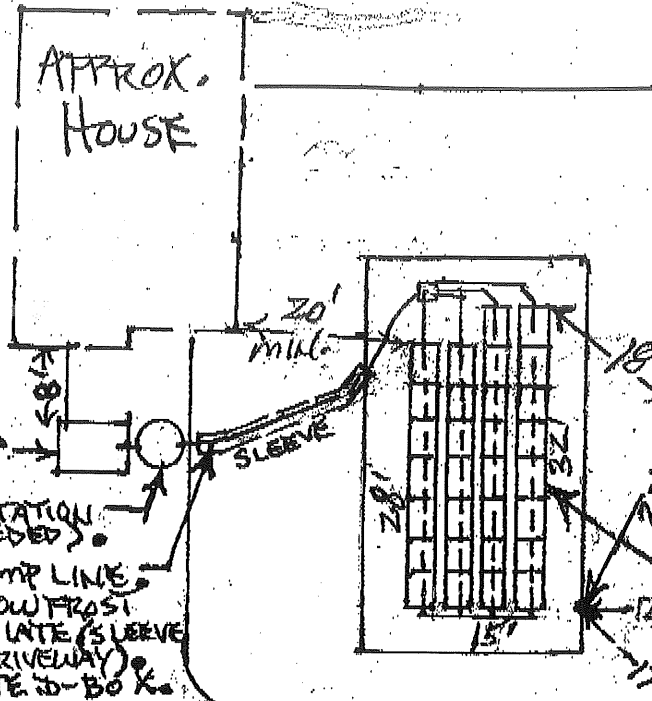 APPROX.
HOUSE
20'
MIN.
8'
SLEEVE
28'
32'
18
15'
TATION
EDED).
MP LINE.
OW FROST
LATE (SLEEVE
RIVEWAY).
TE D-BOX.